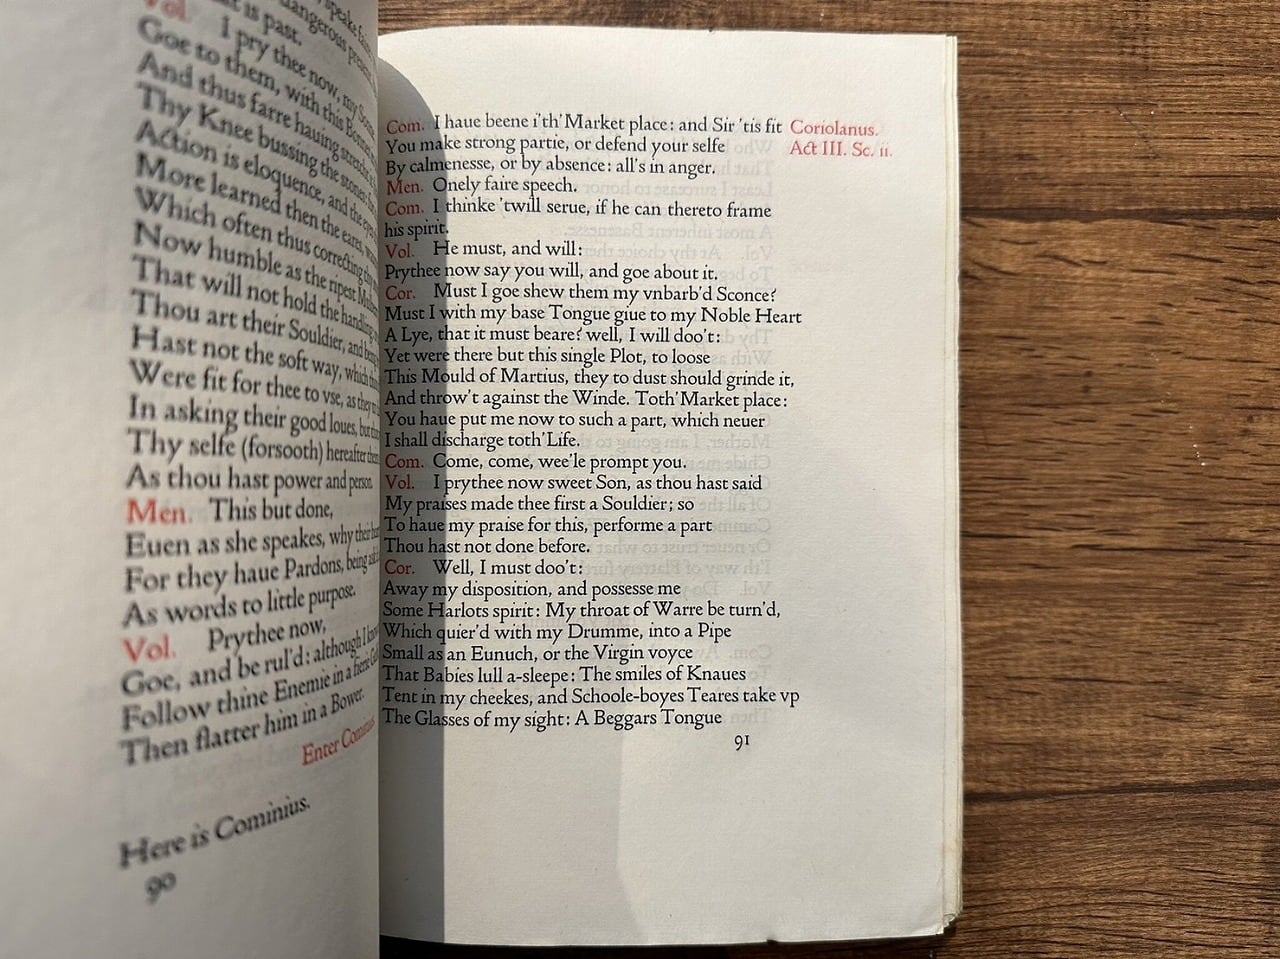 is past.
Vol. I pry thee now, my Sonne,
Goe to them, with this Bonnet
And thus farre hauing stretcht
Thy Knee bussing the stones: for
Action is eloquence, and the eyes
More learned then the eares,
Which often thus correcting
Now humble as the ripest
That will not hold the handling
Thou art their Souldier, and
Hast not the soft way, which
Were fit for thee to vse, as they
In asking their good loues, but
Thy selfe (forsooth) hereafter
As thou hast power and person.
Men. This but done,
Euen as she speakes, why their
For they haue Pardons, being
As words to little purpose.
Vol. Prythee now,
Goe, and be rul'd: although I
Follow thine Enemie in a fierie
Then flatter him in a Bower.
Enter Cominius.
Here is Cominius.
90
Coriolanus.
Act III. Sc. ii.
Com. I haue beene i'th' Market place: and Sir 'tis fit
You make strong partie, or defend your selfe
By calmenesse, or by absence: all's in anger.
Men. Onely faire speech.
Com. I thinke 'twill serue, if he can thereto frame
his spirit.
Vol. He must, and will:
Prythee now say you will, and goe about it.
Cor. Must I goe shew them my vnbarb'd Sconce?
Must I with my base Tongue giue to my Noble Heart
A Lye, that it must beare? well, I will doo't:
Yet were there but this single Plot, to loose
This Mould of Martius, they to dust should grinde it,
And throw't against the Winde. Toth' Market place:
You haue put me now to such a part, which neuer
I shall discharge toth' Life.
Com. Come, come, wee'le prompt you.
Vol. I prythee now sweet Son, as thou hast said
My praises made thee first a Souldier; so
To haue my praise for this, performe a part
Thou hast not done before.
Cor. Well, I must doo't:
Away my disposition, and possesse me
Some Harlots spirit: My throat of Warre be turn'd,
Which quier'd with my Drumme, into a Pipe
Small as an Eunuch, or the Virgin voyce
That Babies lull a-sleepe: The smiles of Knaues
Tent in my cheekes, and Schoole-boyes Teares take vp
The Glasses of my sight: A Beggars Tongue
91